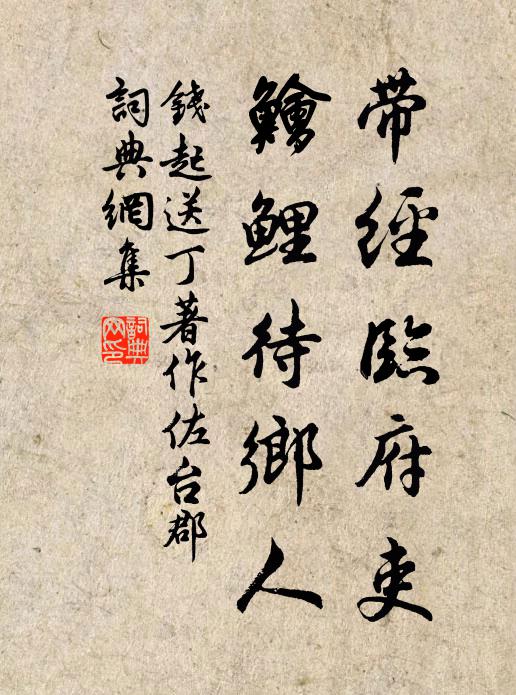 帶經臨府吏
鱠鯉待鄉人
錢起送丁著作佐台郡
詞典網集
詞典網印